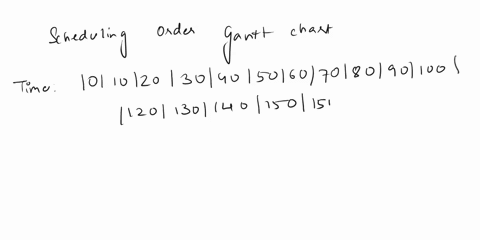 Scheduling order Gantt chart
Time. |0|10|20|30|40|50|60|70|80|90|100|
|120|130|140|150|151